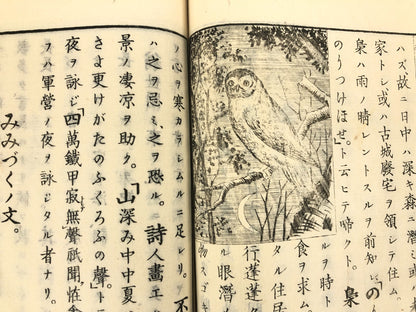 ハズ故ニ日中ハ深森
家トシ或ハ古城廢宅ヲ領シテ住ム。
梟ハ雨ノ晴レントスルヲ前知シ「の
のりつけほせ。」ト云ヒテ啼クト。
梟
ルヲ時ト
食ヲ求ム。
タル住居
ル眼
物スゴキ
ノ心ヲ寒カラシムルニ足レリ。不
ハ之ヲ忌ミ之ヲ恐ル。詩人畫工
景ノ凄凉ヲ助ク。「山深み中中夏
さよ更けがたのふくろふの聲。」ト
夜ヲ詠ジ「四萬鐵甲寂無聲祇聞恠禽
ヲハ軍營ノ夜ヲ詠ジタル者ナリ。
みみづくノ文。